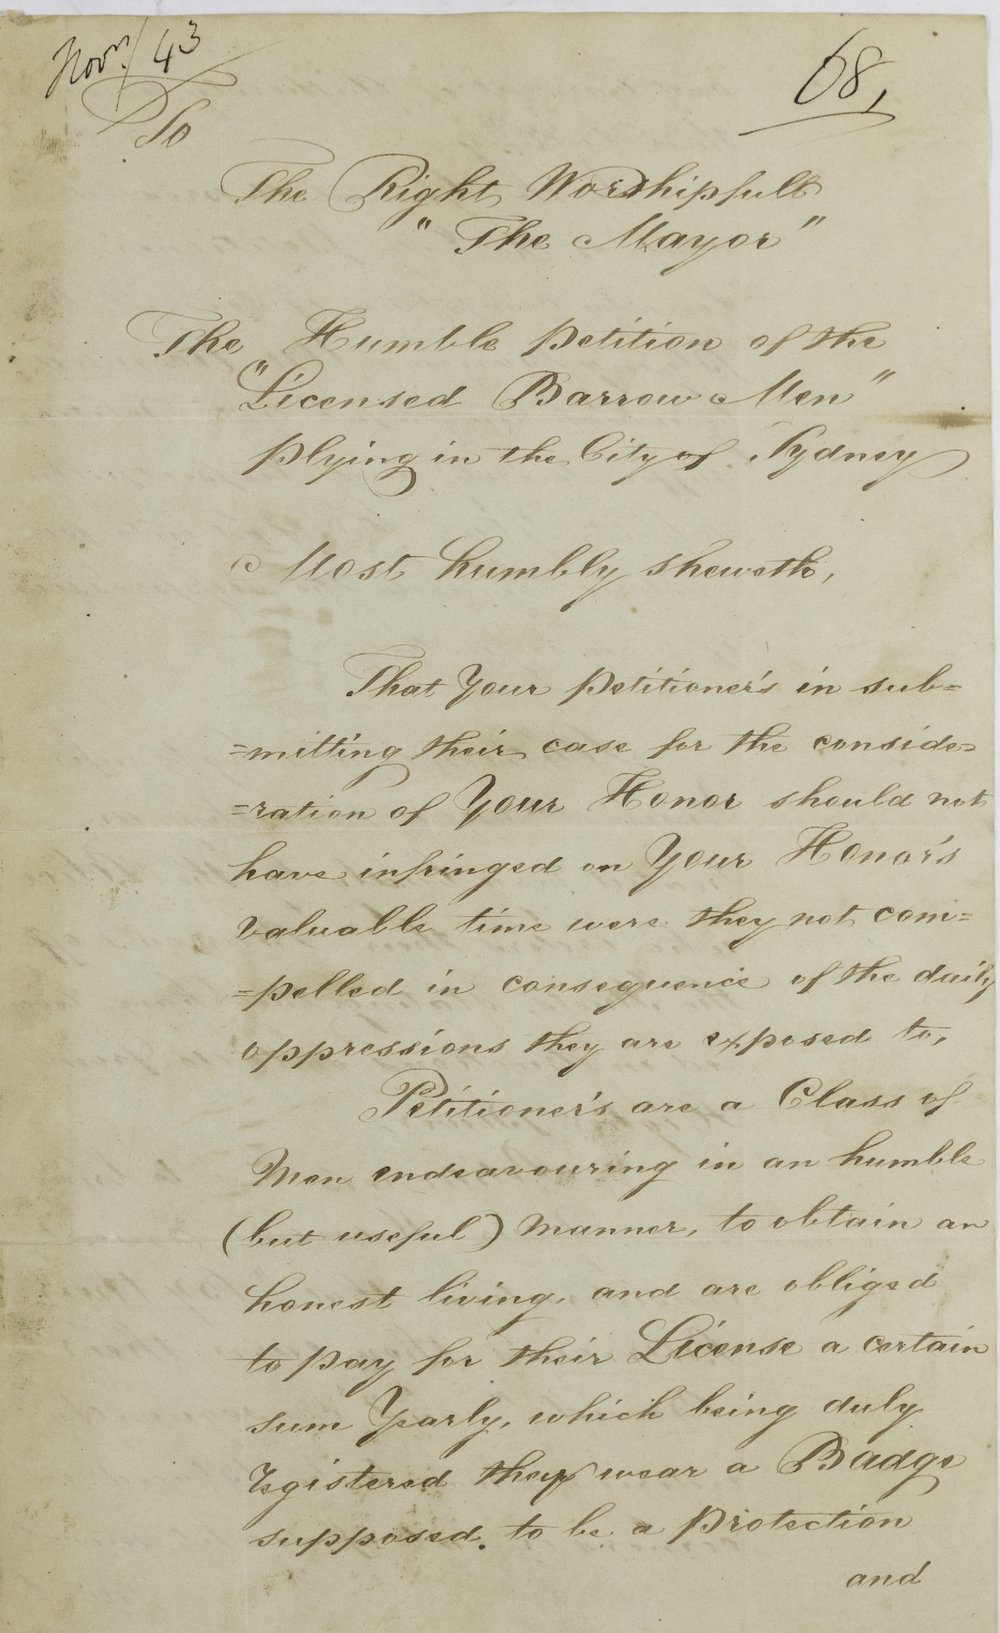 Novr/43
68,
To
The Right Worshipfull
"The Mayor"
The Humble petition of the
"Licensed Barrow Men"
plying in the City of Sydney
Most humbly sheweth,
That Your petitioner's in sub=
=mitting their case for the conside=
=ration of Your Honor should not
have infringed on Your Honor's
valuable time were they not com=
=pelled in consequence of the daily
oppressions they are exposed to,
Petitioner's are a Class of
Men endeavouring in an humble
(but useful) manner, to obtain an
honest living, and are obliged
to pay for their License a certain
sum Yearly, which being duly
registered they wear a Badge
supposed. to be a protection
and